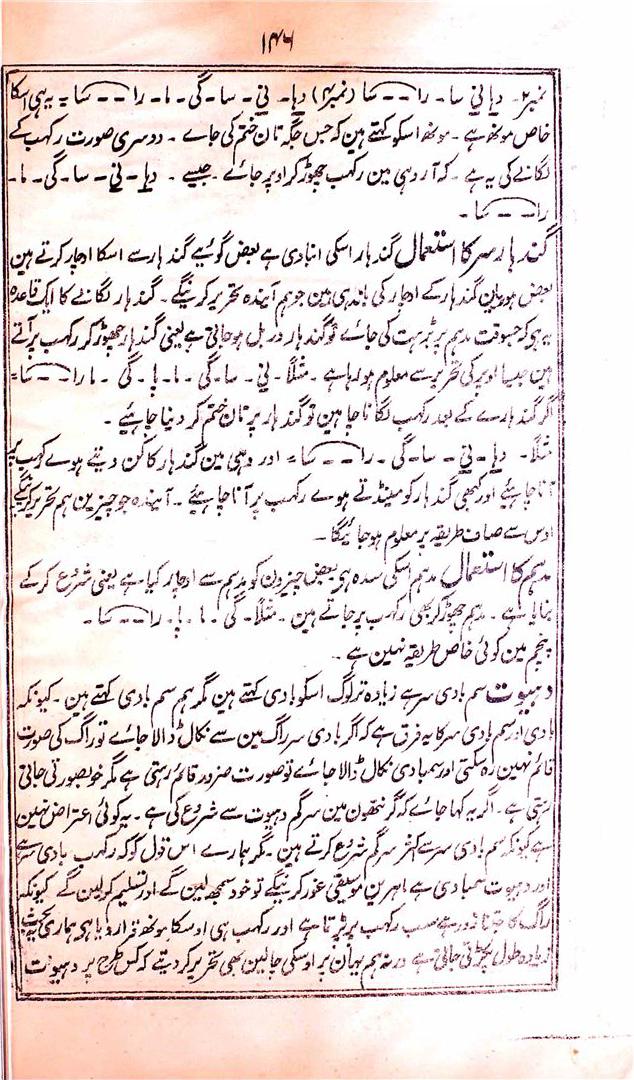 ۱۴۶
نمبر۲۔ دہا نی سا۔ را۔۔۔سا (نمبر۳) دہا۔ نی۔ سا۔ گی۔ ما۔ را۔۔۔سا۔ یہ ہی اسکا
خاص مونھ ہے۔ مونھ اسکو کہتے ہین کہ جس جگہ تان ختم کی جاے۔ دوسری صورت رکہب کے
لگانے کی یہ ہے۔ کہ آروہی مین رکہب چھوڑ کر اوپر جائے۔ جیسے۔ دہا۔ نی۔ سا۔ گی۔ ما۔
را۔۔۔سا۔
گندہار سر کا استعمال گندہار اسکی انبادی ہے بعض گوئیے گندہار سے اسکا اوچار کرتے ہین
بعض ہوریان گندہار کے اوچار کی باندہی ہین جو ہم آیندہ تحریر کرینگے۔ گندہار لگانے کا ایک قاعدہ
یہ ہی کہ جسوقت مدہم پر بڑہت کی جائے تو گندہار دربل ہوجاتی ہے یعنی گندہار چھوڑ کر رکہب پر آتے
ہین جیسا اوپر کی تحریر سے معلوم ہورہا ہے۔ مثلاً۔ نی۔ سا۔ گی۔ ما۔ پا۔ گی۔ ما را۔۔۔سا۔
اگر گندہارے کے بعد رکہب لگانا چاہین تو گندہار پر تان ختم کر دینا چاہئیے۔
مثلاً۔ دہا۔ نی۔ سا۔ گی۔ را۔۔۔سا۔ اور وہی مین گندہار کا کن دیتے ہوے رکہب پر
آنا چاہئیے اور کبھی گندہار کو مینڈتے ہوے رکہب پر آنا چاہئیے۔ آیندہ جو چیزین ہم تحریر کرینگے
اوس سے صاف طریقہ پر معلوم ہوجائیگا۔
مدہم کا استعمال مدہم اسکی سدہ ہی بعض چیزون کو مدہم سے اوچار کیا ہے یعنی شروع کر کے
بنایا ہے۔ مدہم چھوڑ کر بھی رکہب پر جاتے ہین۔ مثلاً۔ گی۔ ما۔ پا۔ را۔۔۔سا۔
پنچم مین کوئی خاص طریقہ نہین ہے۔
دہیوت سم بادی سر ہے زیادہ تر لوگ اسکو بادی کہتے ہین مگر ہم سم بادی کہتے ہین۔ کیونکہ
بادی اور سم بادی سر کا یہ فرق ہے کہ اگر بادی سر راگ مین سے نکال ڈالا جاے تو راگ کی صورت
قائم نہین رہ سکتی اور سمبادی نکال ڈالا جاے تو صورت ضرور قائم رہتی ہے مگر خوبصورتی جاتی
رہتی ہے۔ اگر یہ کہا جائے کہ گرنتھون مین سرگم دہیوت سے شروع کی ہے۔ یہ کوئی اعتراض نہین
ہے کیونکہ سم بادی سر سے اکثر سرگم شروع کرتے ہین۔ مگر ہمارے اس قول کو کہ رکہب بادی سر ہے
اور دہیوت سمبادی ہے ماہرین موسیقی غور کرینگے تو خود سمجھ لین گے اور تسلیم کر لین گے کیونکہ
راگ کا جتنا زور ہے سب رکہب پر پڑتا ہے اور رکہب ہی اوسکا مونھ قرار دیا ہی ہماری بحث
زیادہ طول پکڑتی جاتی ہے ورنہ ہم یہان پر اوسکی چالین بھی تحریر کر دیتے کہ کس طرح پر دہیوت